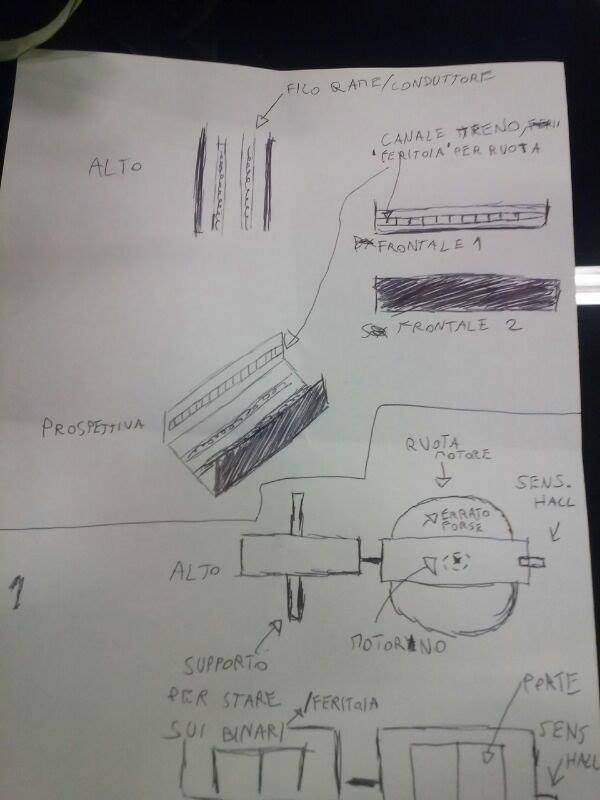 FILO RAME/CONDUTTORE
ALTO
CANALE TRENO,
'FERITOIA' PER RUOTA
FRONTALE 1
FRONTALE 2
PROSPETTIVA
RUOTA
MOTORE
SENS.
HALL
ERRATO
FORSE
ALTO
1
MOTORINO
SUPPORTO
PER STARE
SUI BINARI
/FERITOIA
PORTE
SENS
HALL